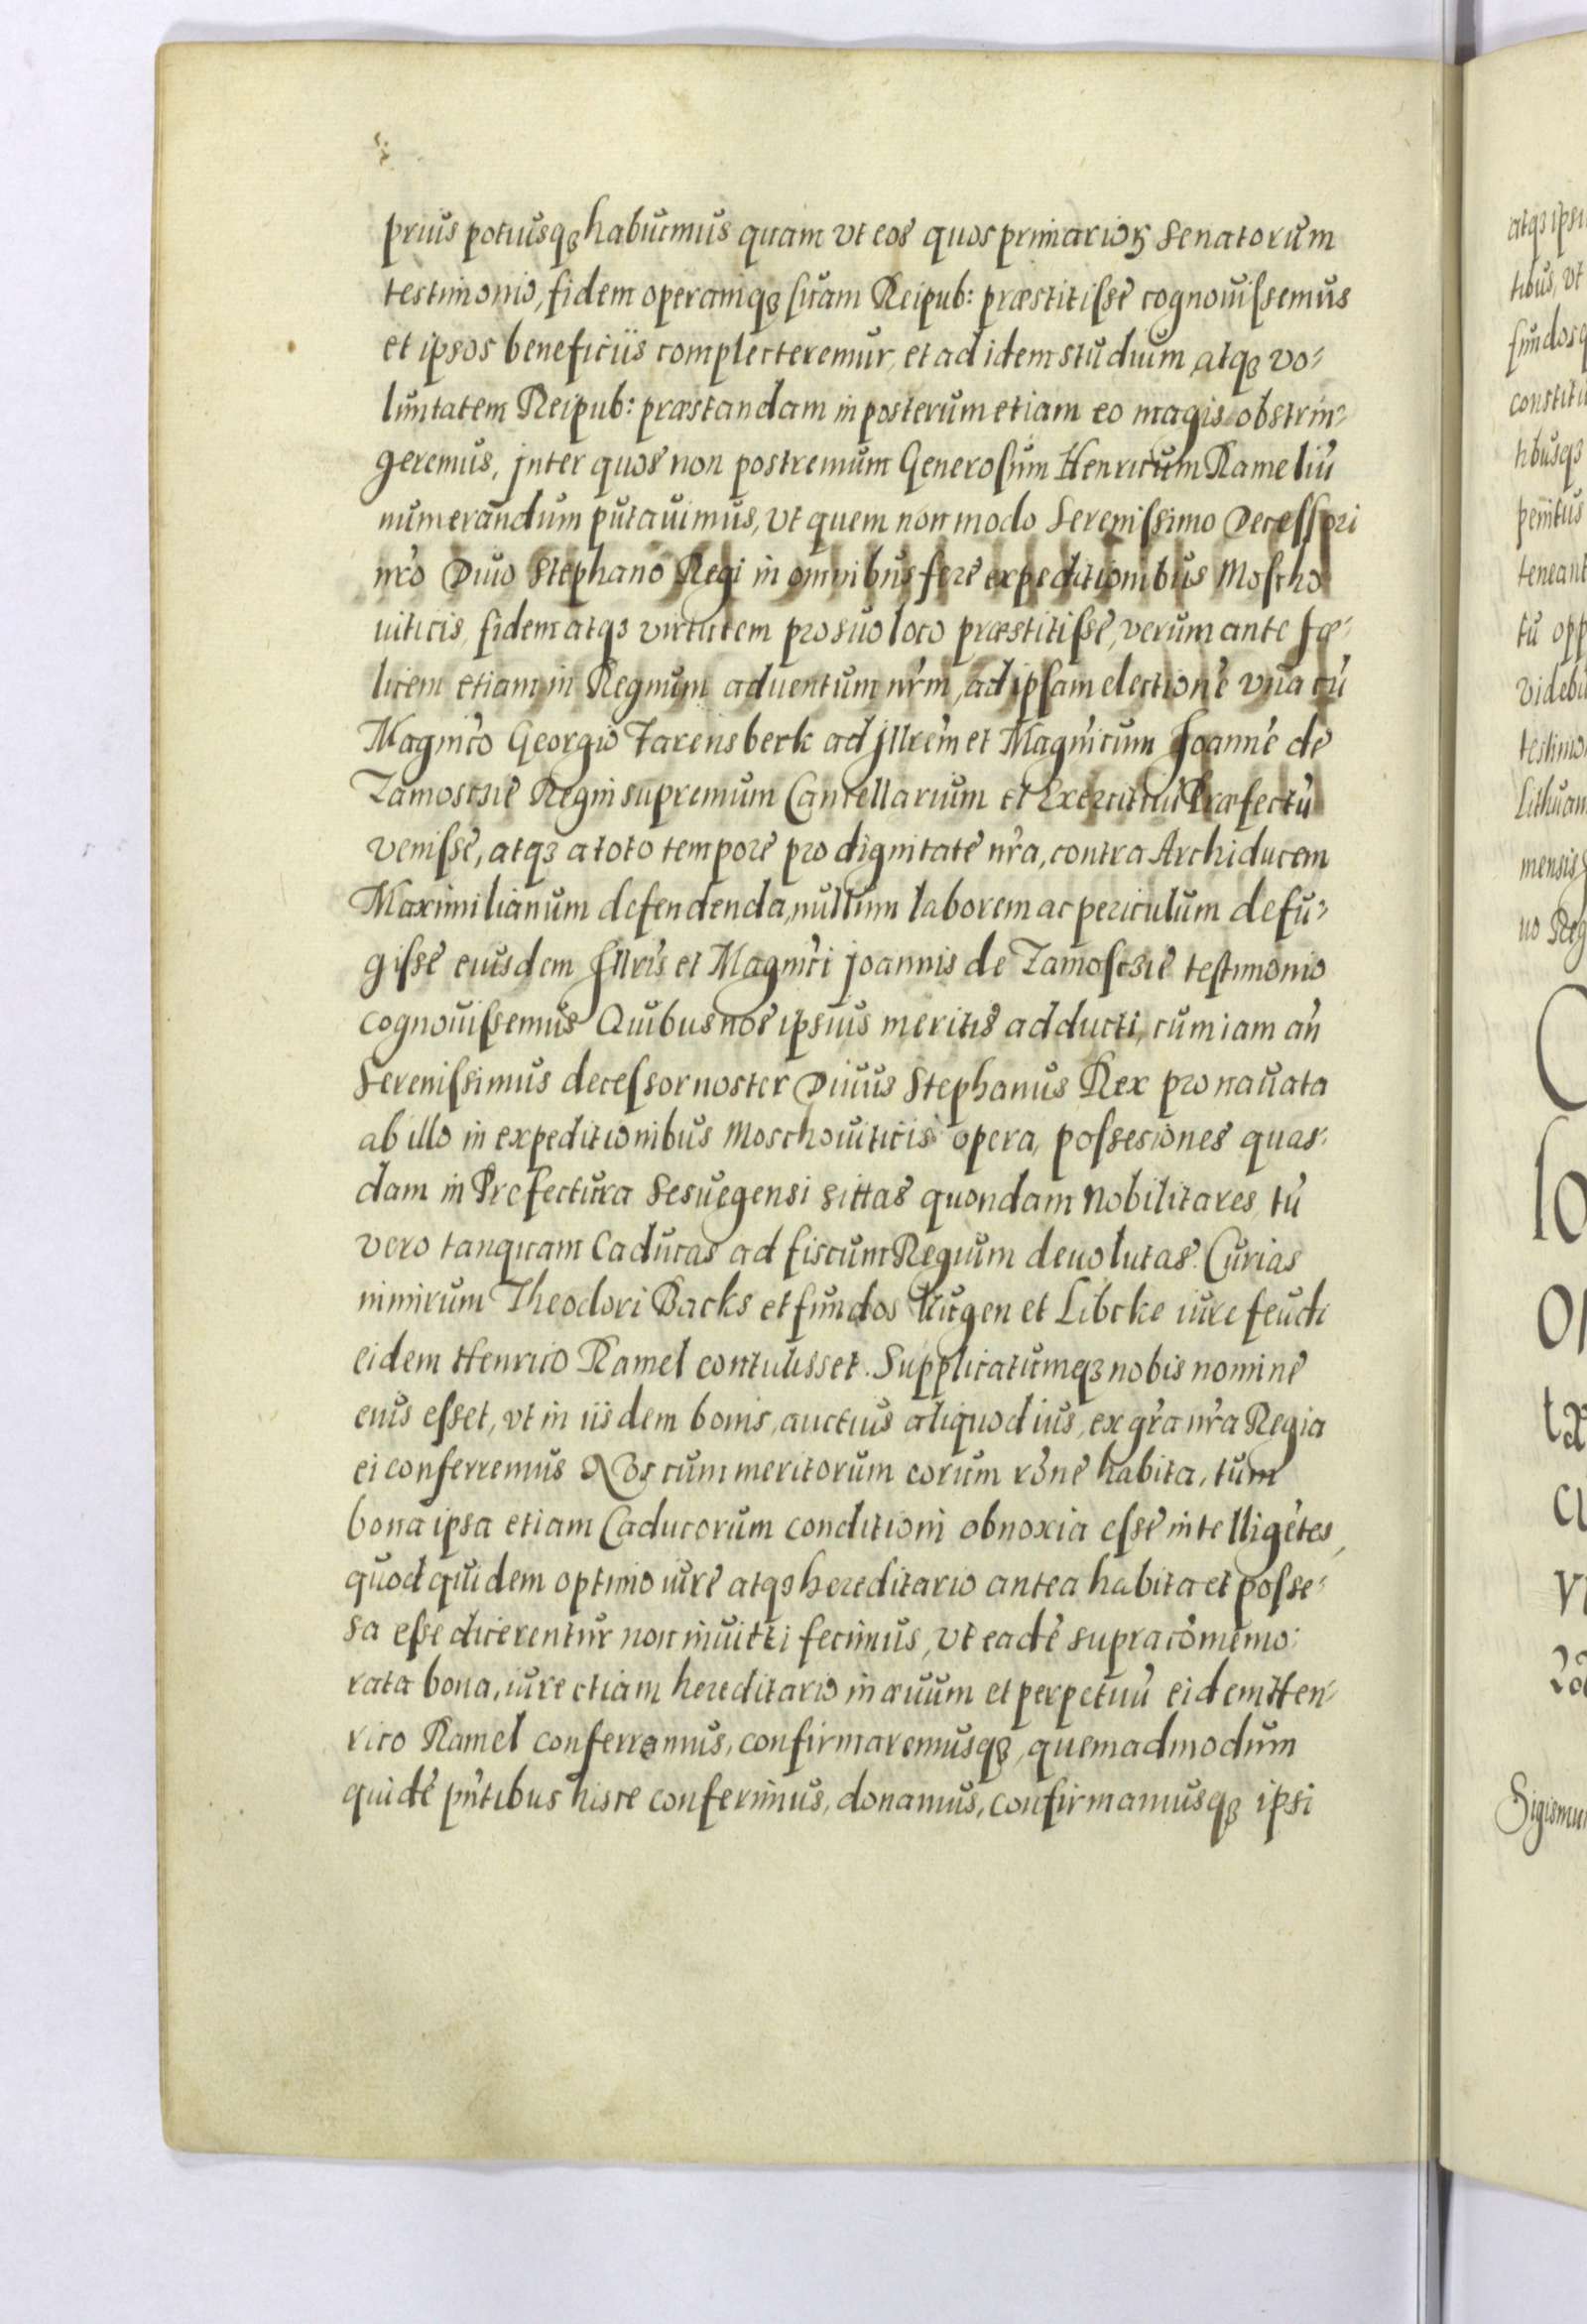 prius potiusqꝫ habuimus quam vt eos quos primarioꝝ Senatorum
testimonio, fidem operamqꝫ suam Reipub: præstitisse cognouissemus
et ipsos beneficiis complecteremur, et ad idem studium atqꝫ vo-
luntatem Reipub: præstandam in posterum etiam eo magis obstrin-
geremus, inter quos non postremum Generosum Henricum Rameliū
numerandum putauimus, vt quem non modo Serenissimo Decessori
nro Diuo Stephano Regi in omnibus fere expeditionibus Moscho
uiticis, fidem atqꝫ virtutem pro suo loco præstitisse, verum ante fæ-
licem etiam in Regnum aduentum nrm, ad ipsam electionē vna cū
Magnco Georgio Farensberk ad Illrem et Magnicum Joannē de
Zamoscsie Regni supremum Cancellarium et Exercitui Præfectū
venisse, atqꝫ a toto tempore pro dignitate nra, contra Archiducem
Maximilianum defendenda, nullum laborem ac periculum defu-
gisse eiusdem Illris et Magnici Joannis de Zamoscsie testimonio
cognouissemus Quibus nos ipsius meritis adducti, cum iam an
Serenissimus decessor noster Diuus Stephanus Rex pro nauata
ab illo in expeditionibus Moschouiticis opera, possesiones quas-
dam in Prefectura Sesuegensi sittas quondam Nobilitares, tū
vero tanquam Caducas ad fiscum Regium deuolutas. Curias
nimirum Theodori Backs et fundos Kugen et Libcke iure feudi
eidem Henrico Ramel contulisset. Supplicatumqꝫ nobis nomine
eius esset, vt in iisdem bonis, auctius aliquod ius, ex gra nra Regia
ei conferremus Nos cum meritorum eorum rone habita, tum
bona ipsa etiam Caducorum conditioni obnoxia esse intelligētes,
quod quidem optimo iure atqꝫ hereditario antea habita et posse-
sa esse dicerentur non inuitti fecimus, vt eadē supracōmemo-
rata bona, iure etiam hereditario in æuum et perpetuū eidem Hen-
rico Ramel conferramus, confirmaremusqꝫ, quemadmodum
quidē pntibus hisce conferimus, donamus, confirmamusqꝫ ipsi